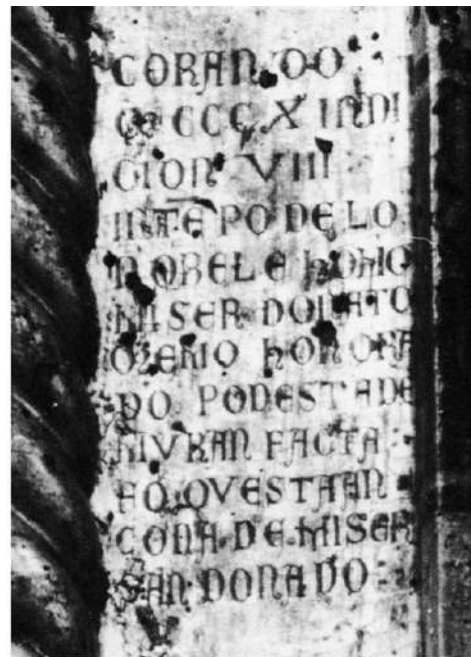 CORAN DO
M CCC X INDI
CION VIII
IN TEPO DE LO
NOBELE HOMO
MISER DONATO
MEMO HONORA
DO PODESTA DE
MVRAN FACTA
FO QVESTA AN
CONA DE MISER
SAN DONADO